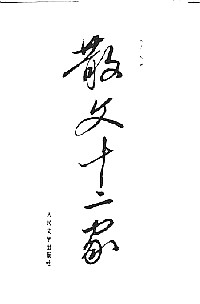 散文十二家
人民文学出版社